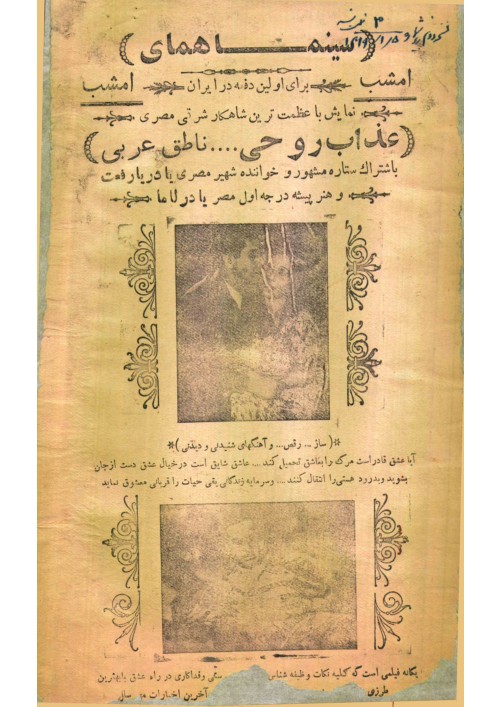 (سینمــاهمای)
امشب
برای اولین دفعه در ایران
امشب
نمایش با عظمت ترین شاهکار شرقی مصری
(عذاب روحی .... ناطق عربی)
باشتراك ستاره مشهور و خواننده شهیر مصری
و هنر پیشه درجه اول مصر
*( ساز ... رقص ... و آهنگهای شنیدنی و دیدنی )*
آیا عشق قادر است مرگ را بعاشق تحمیل کند ... عاشق شایق است در خیال عشق دست از جان
بشوید وبدرود هستی را انتقال کند .... وسرمایه زندگانی یعنی حیات را قربانی معشوق نماید
یگانه فیلمی است که کلیه نکات و وظیفه شناسی وفداکاری در راه عشق بابهترین
طرزی
آخرین اخبارات
سال